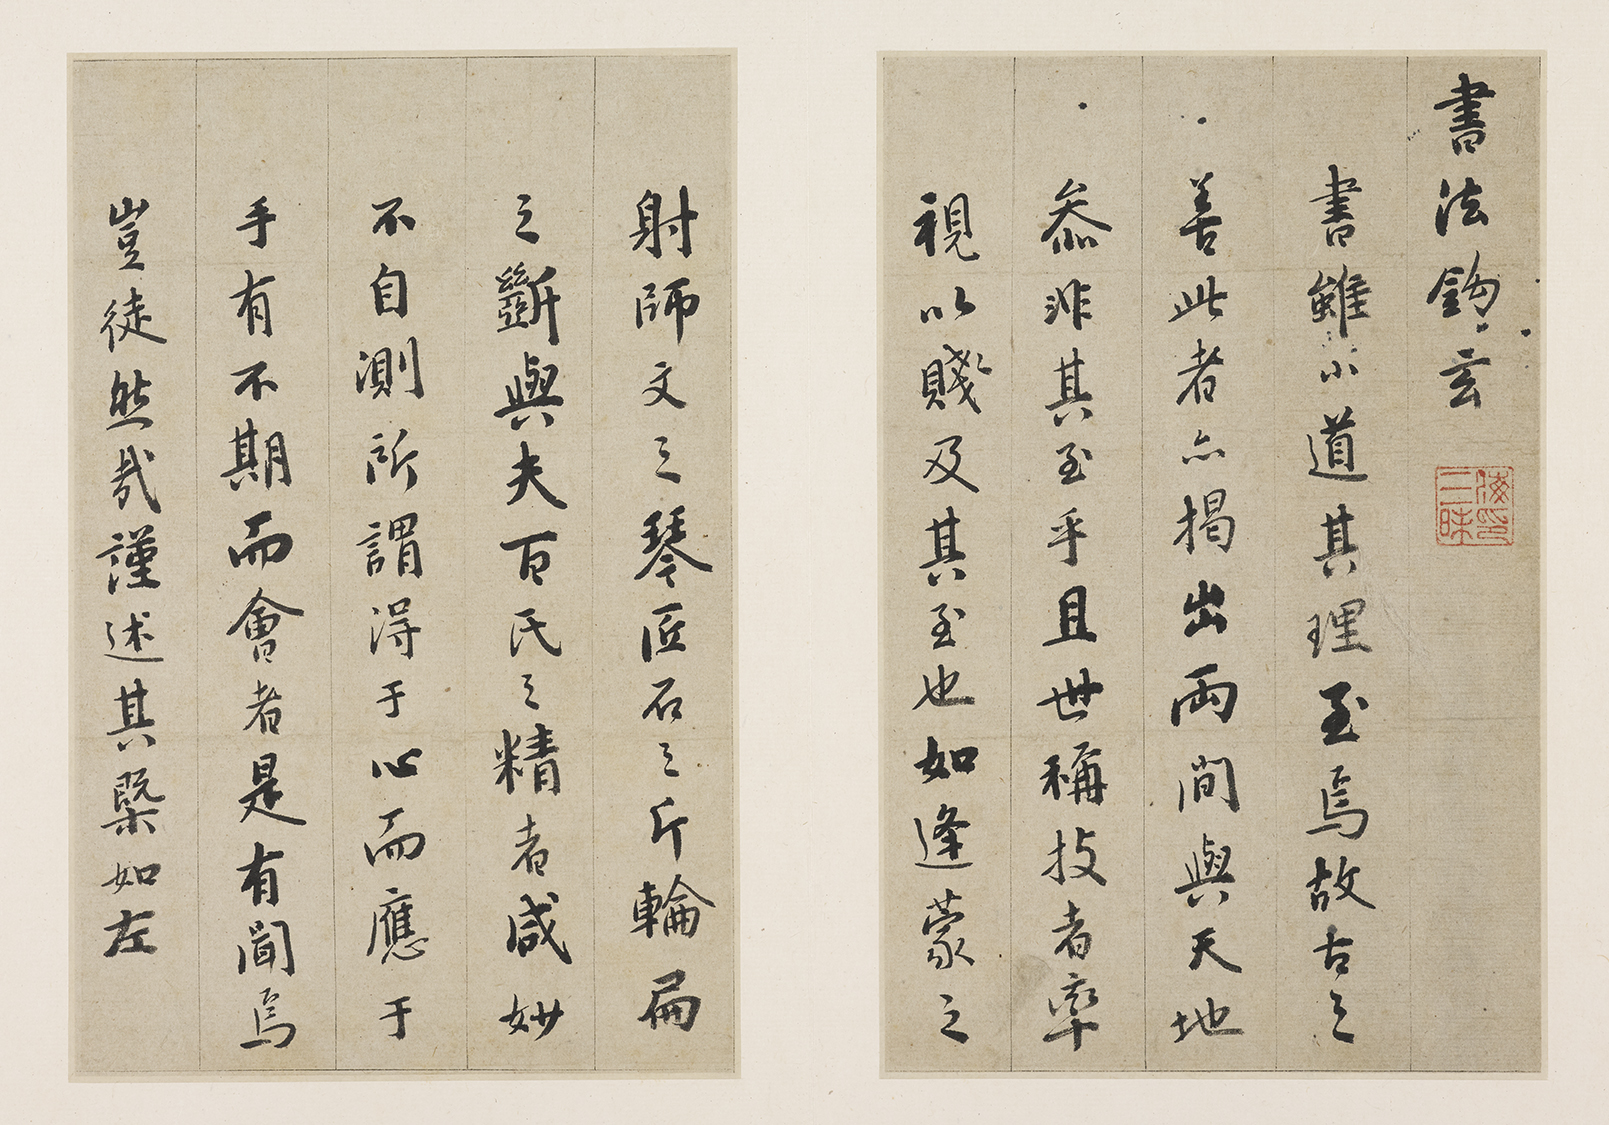 書法鈎玄
海印三昧
書雖小道其理至焉故古之
善此者亦揭出兩間與天地
叅非其至乎且世稱技者率
視以賤及其至也如逢蒙之
射師文之琴匠石之斤輪扁
之斷與夫百氏之精者咸妙
不自測所謂得于心而應于
手有不期而會者是有聞焉
豈徒然哉謹述其槩如左